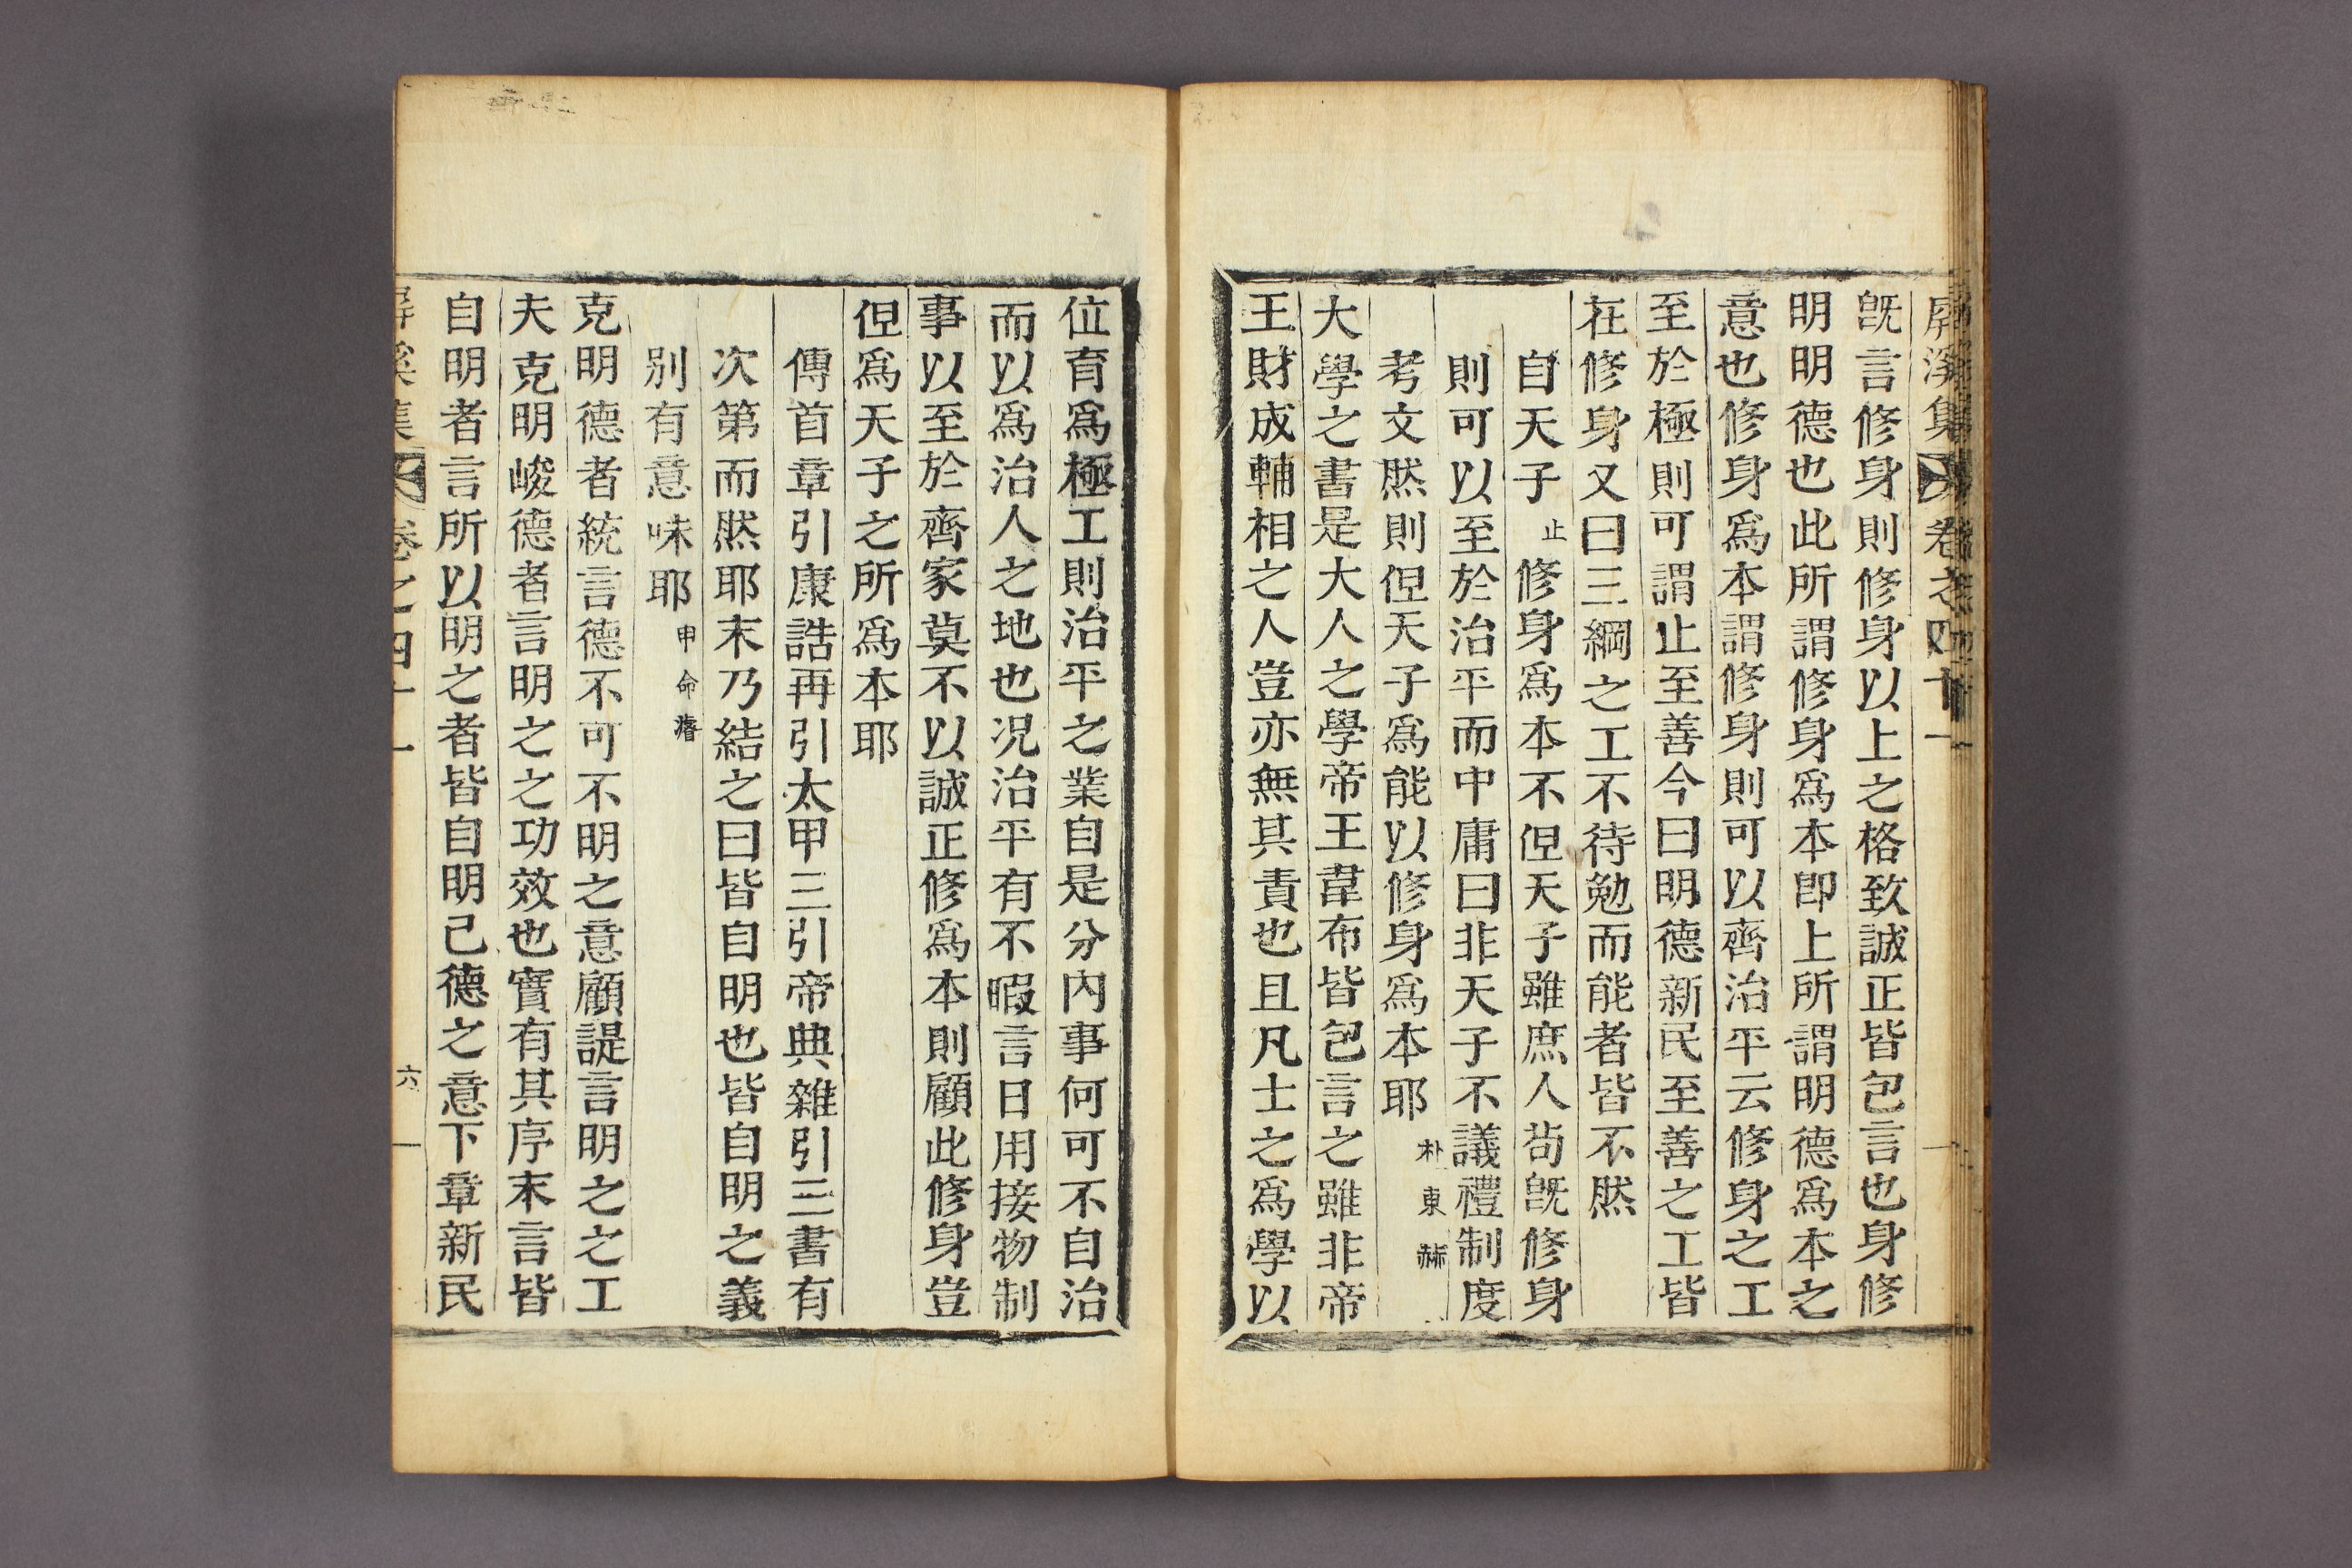 屛溪集 卷之四十一
旣言修身則修身以上之格致誠正皆包言也身修
明明德也此所謂修身爲本卽上所謂明德爲本之
意也修身爲本謂修身則可以齊治平云修身之工
至於極則可謂止至善今曰明德新民至善之工皆
在修身又曰三綱之工不待勉而能者皆不然
自天子止修身爲本不但天子雖庶人茍旣修身
則可以至於治平而中庸曰非天子不議禮制度
考文然則但天子爲能以修身爲本耶朴東赫
大學之書是大人之學帝王韋布皆包言之雖非帝
王財成輔相之人豈亦無其責也且凡士之爲學以
位育爲極工則治平之業自是分內事何可不自治
而以爲治人之地也况治平有不暇言日用接物制
事以至於齊家莫不以誠正修爲本則顧此修身豈
但爲天子之所爲本耶
傳首章引康誥再引太甲三引帝典雜引三書有
次第而然耶末乃結之曰皆自明也皆自明之義
別有意味耶申命濬
克明德者統言德不可不明之意顧諟言明之之工
夫克明峻德者言明之之功效也實有其序末言皆
自明者言所以明之者皆自明己德之意下章新民
屛溪集 卷之四十一 六